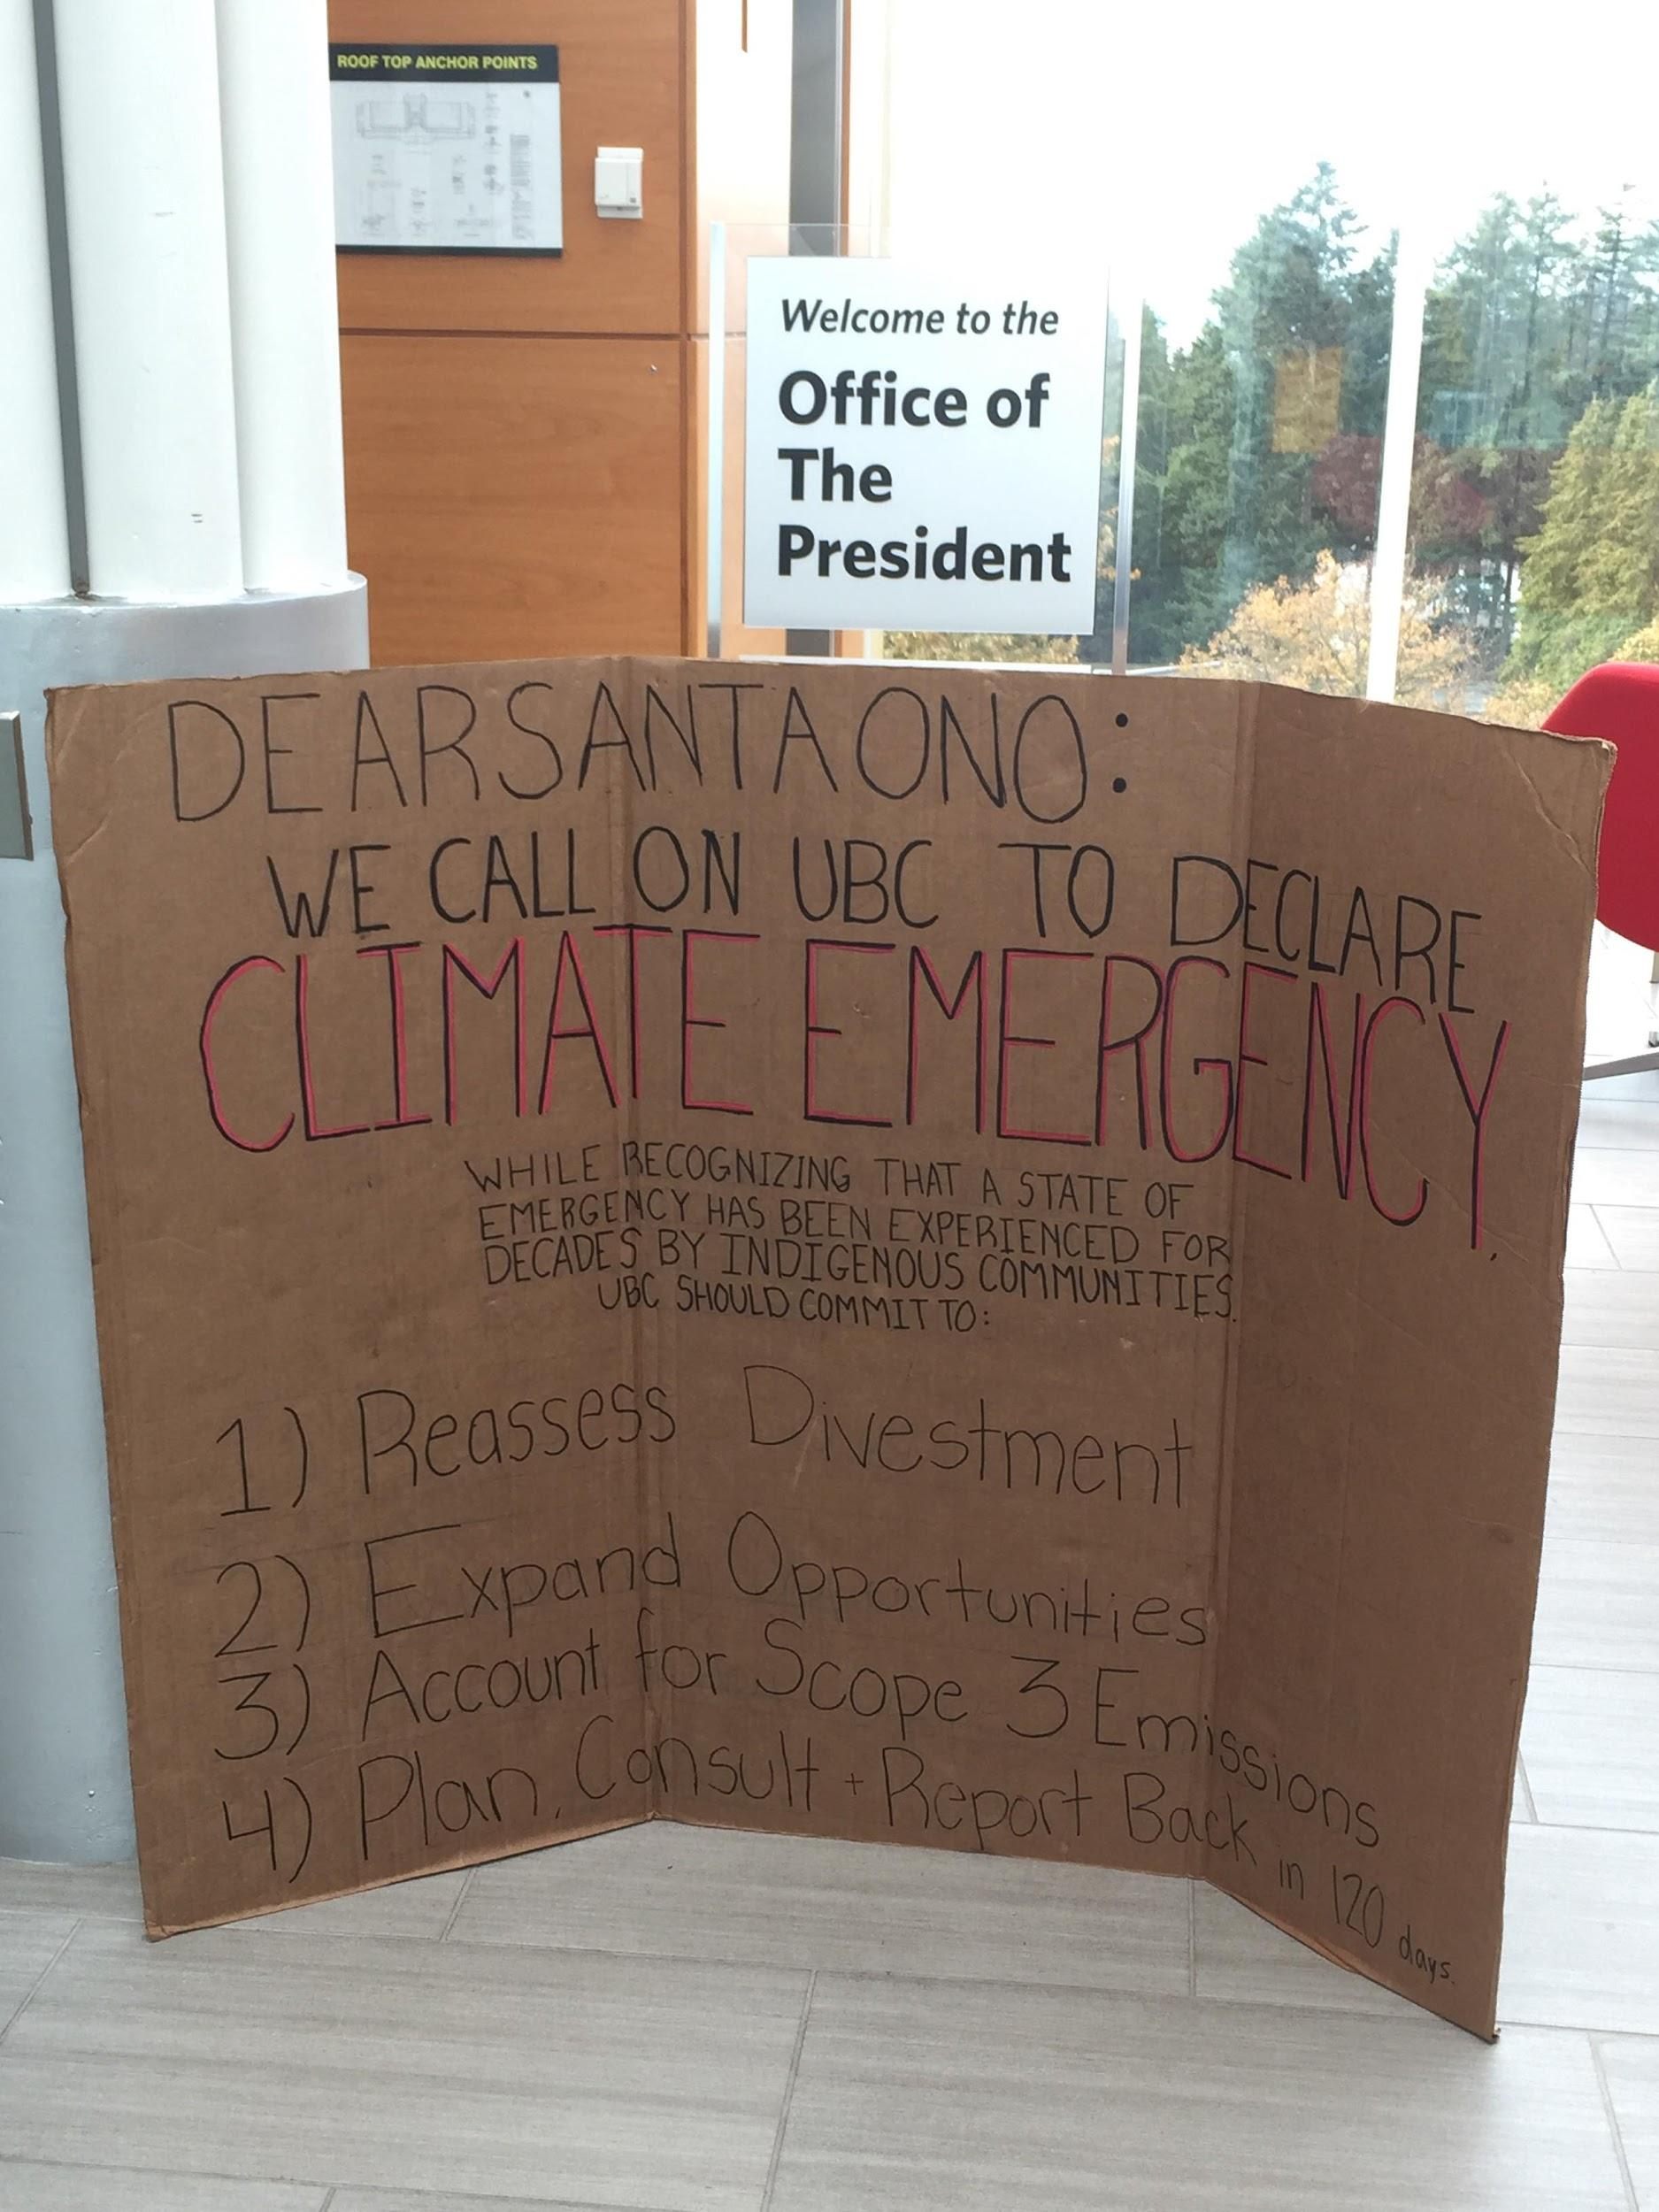 ROOF TOP ANCHOR POINTS
Welcome to the
Office of
The
President
DEAR SANTA ONO:
WE CALL ON UBC TO DECLARE
CLIMATE EMERGENCY,
WHILE RECOGNIZING THAT A STATE OF
EMERGENCY HAS BEEN EXPERIENCED FOR
DECADES BY INDIGENOUS COMMUNITIES.
UBC SHOULD COMMIT TO:
1) Reassess Divestment
2) Expand Opportunities
3) Account for Scope 3 Emissions
4) Plan, Consult + Report Back in 120 days.